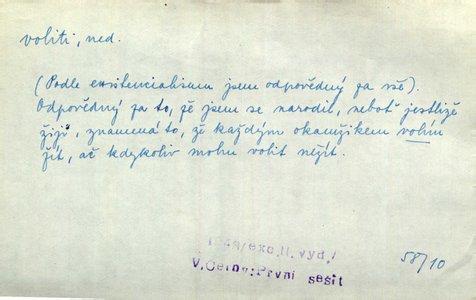 voliti, ned.
(Podle existencialismu jsem odpovědný za vše).
Odpovědný za to, že jsem se narodil, neboť jestliže
žiji, znamená to, že každým okamžikem volím
žít, ač kdykoliv mohu volit nežít.
1948/exc.II.vyd./
V.Černý:První sešit
58/10